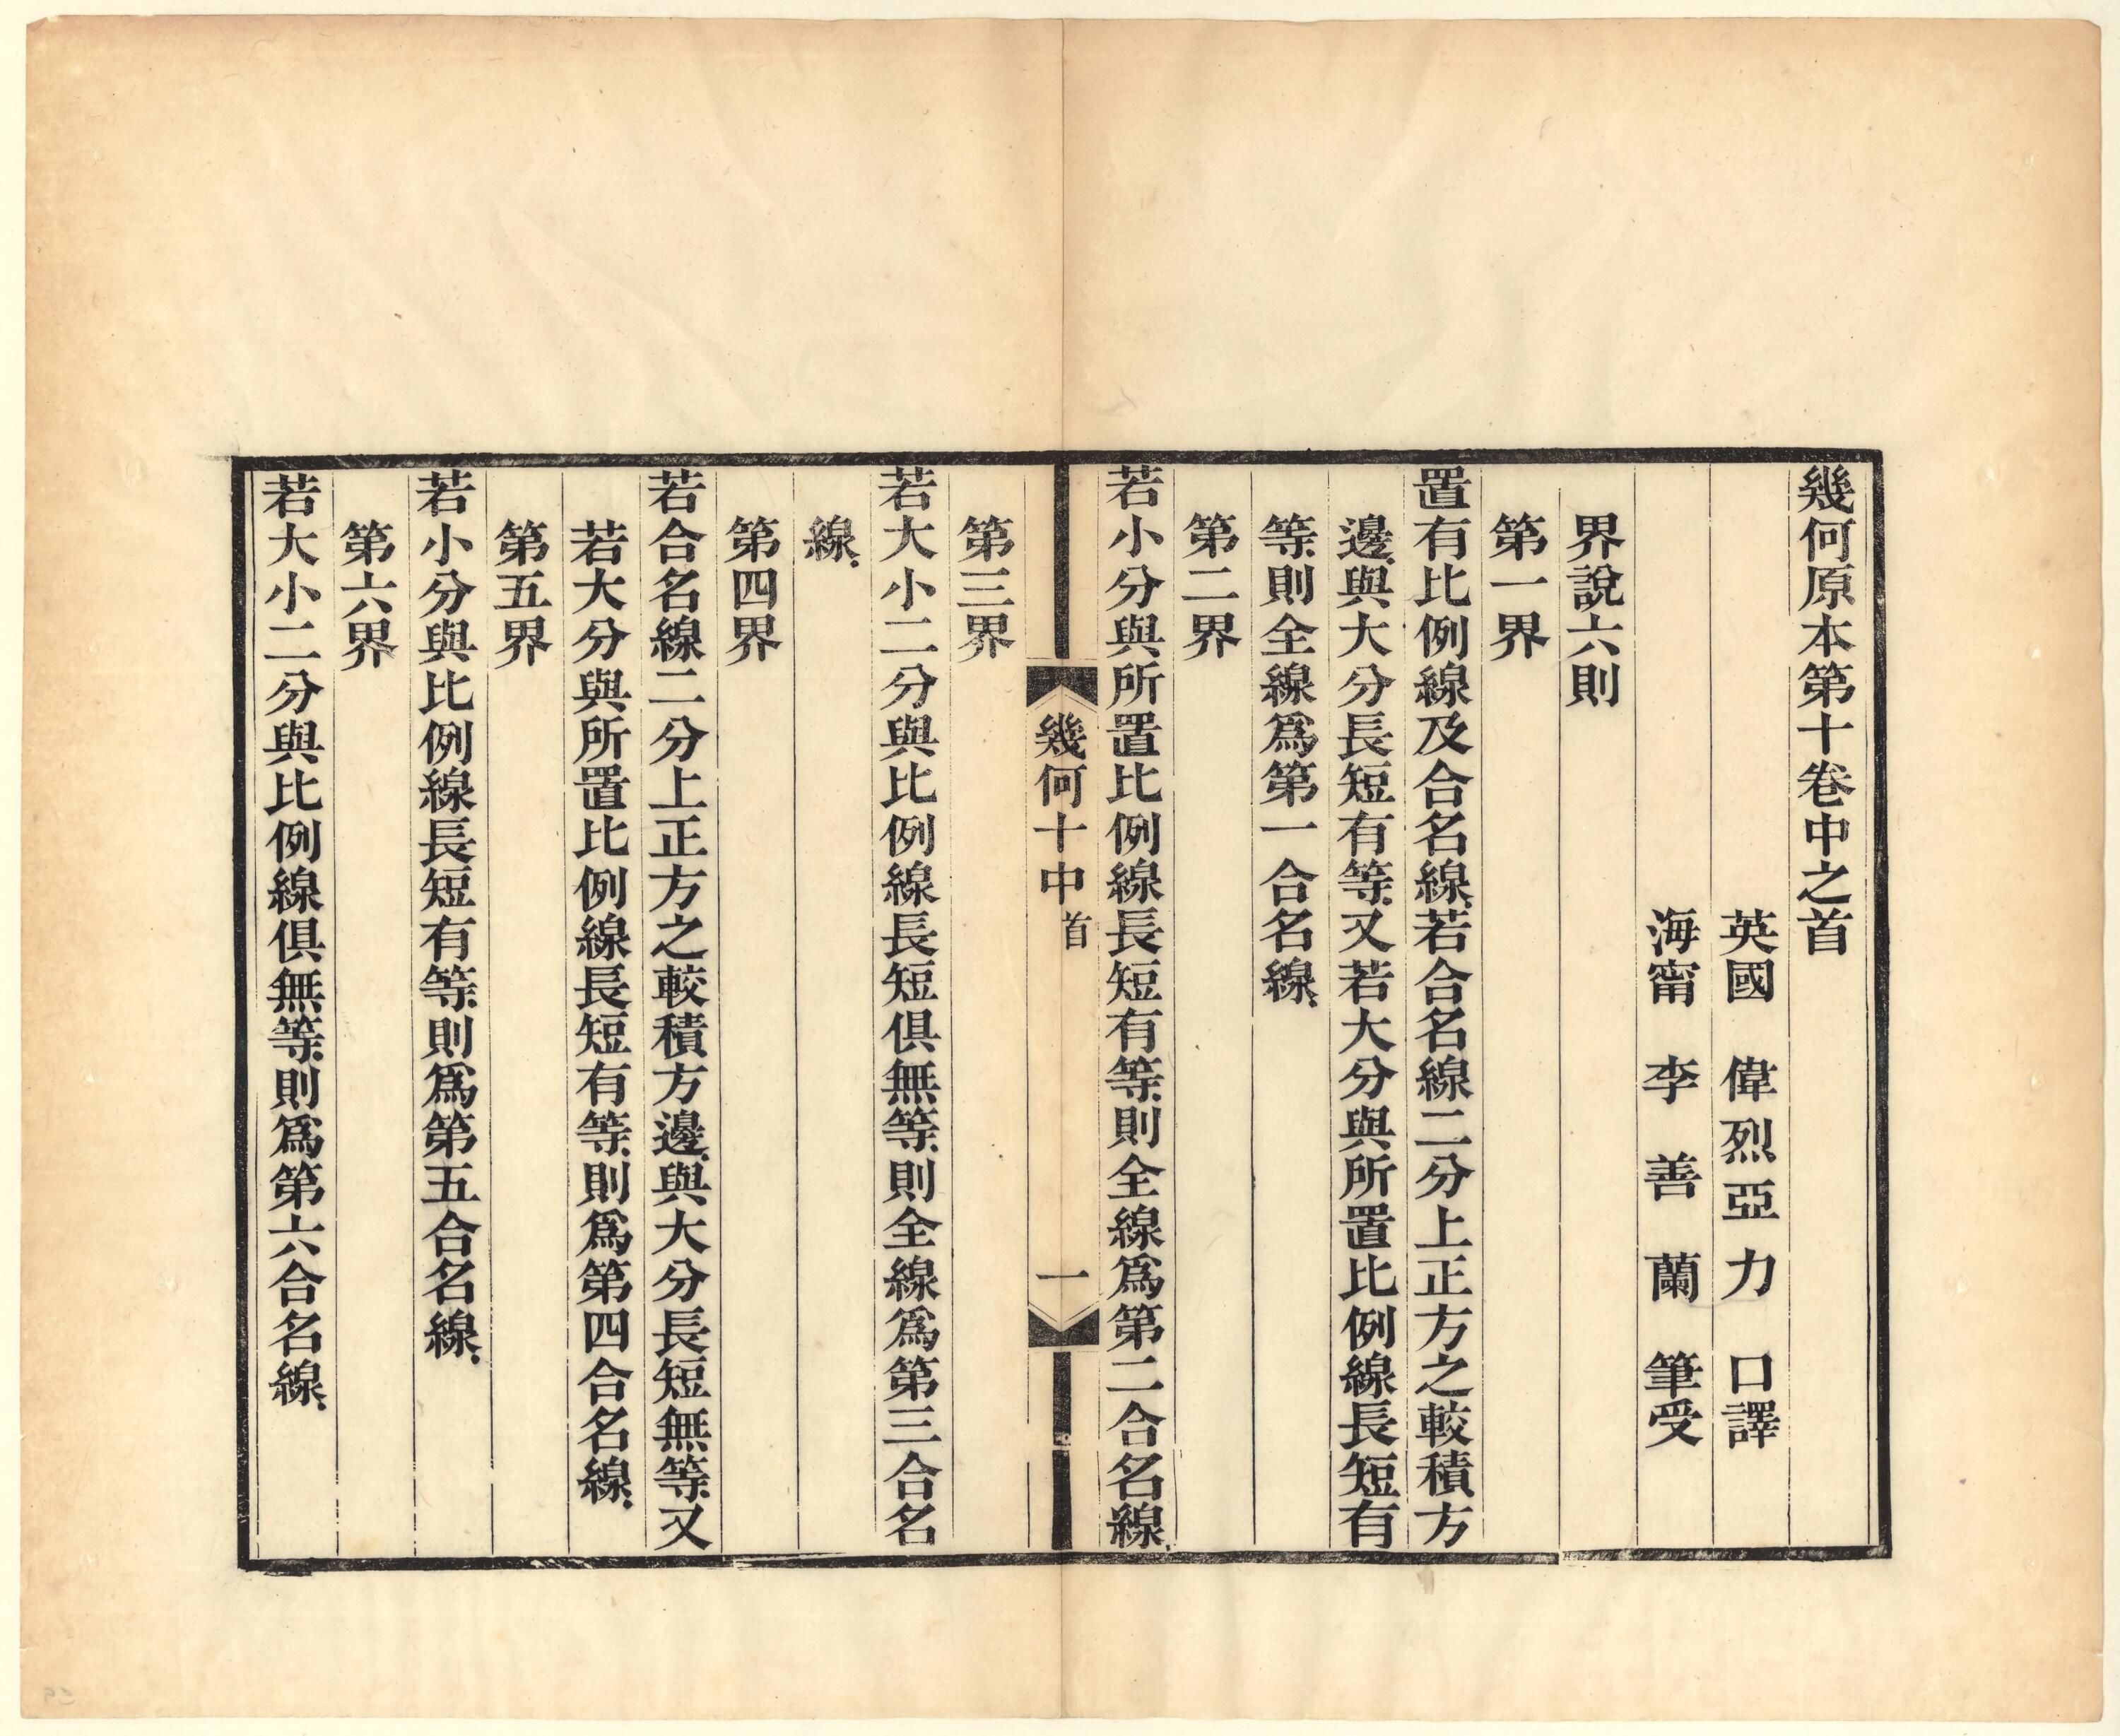 幾何原本第十卷中之首
英國　偉烈亞力　口譯
海甯　李善蘭　筆受
界說六則
第一界
置有比例線及合名線、若合名線二分上正方之較積方
邊、與大分長短有等、又若大分與所置比例線長短有
等、則全線爲第一合名線、
第二界
若小分與所置比例線長短有等、則全線爲第二合名線、
幾何十中首　一
第三界
若大小二分與比例線長短俱無等、則全線爲第三合名
線、
第四界
若合名線二分上正方之較積方邊、與大分長短無等、又
若大分與所置比例線長短有等、則爲第四合名線、
第五界
若小分與比例線長短有等、則爲第五合名線、
第六界
若大小二分與比例線俱無等、則爲第六合名線、